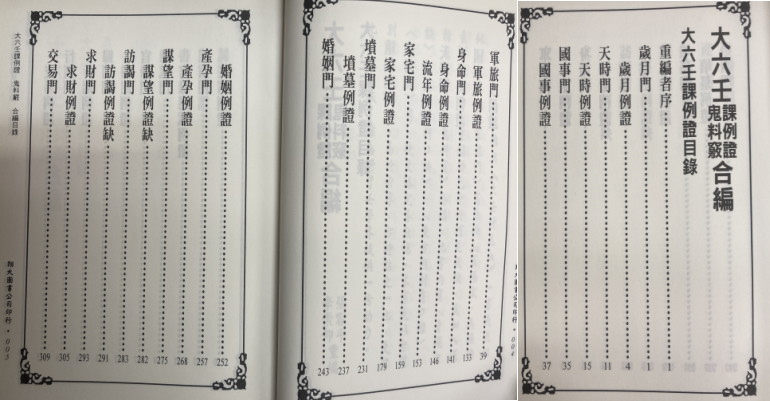 大六壬課例證鬼料竅合編
大六壬課例證目錄
重編者序……1
歲月門……1
歲月例證……4
天時門……11
天時例證……15
國事門……35
國事例證……37
軍旅門……39
軍旅例證……133
身命門……141
身命例證……146
流年例證……153
家宅門……159
家宅例證……179
墳墓門……231
墳墓例證……237
婚姻門……243
大圖書公司印行•004
婚姻例證……252
產孕門……257
產孕例證……268
謀望門……275
謀望例證缺……282
訪謁門……283
訪謁例證缺……291
求財門……293
求財例證……305
交易門……309
大六壬課例證 鬼料竅 合編目錄
大圖書公司印行•005